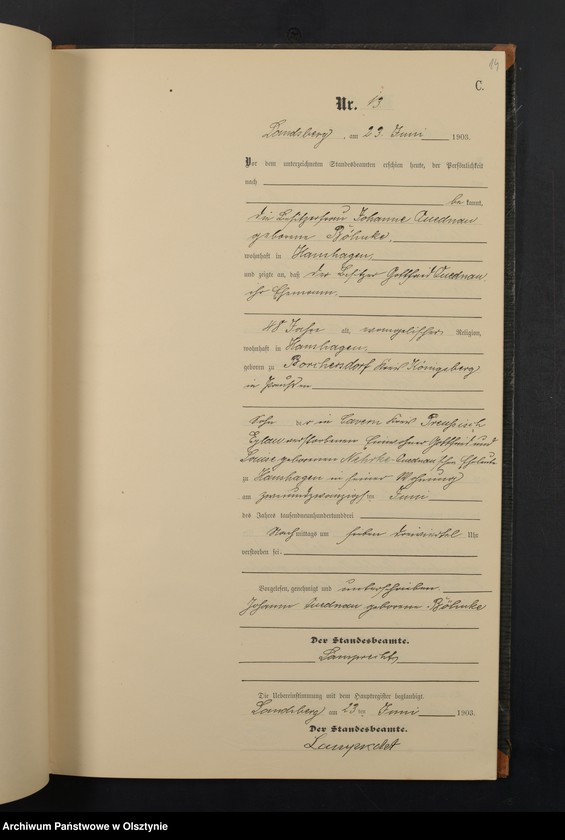 14
C.
Nr. 13
Landsberg, am 23. Juni 1903.
Vor dem unterzeichneten Standesbeamten erschien heute, der Persönlichkeit
nach
be kannt,
die Besitzerfrau Johanne Quednau
geborene Böhnke,
wohnhaft in Hanshagen,
und zeigte an, daß der Besitzer Gottfried Quednau,
ihr Ehemann,
48 Jahre alt, evangelischer Religion,
wohnhaft in Hanshagen,
geboren zu Borchersdorf Kreis Königsberg
in Preußen
Sohn der in Cavern Kreis Preussisch
Eylau verstorbenen Einwohner Gottfried und
geborenen Quednau'schen Eheleute
zu Hanshagen in seiner Wohnung
am zweiundzwanzigsten Juni
des Jahres tausendneunhundertunddrei
Nachmittags um sieben dreiviertel Uhr
verstorben sei.
Vorgelesen, genehmigt und unterschrieben.
Johanne Quednau geborene Böhnke
Der Standesbeamte.
Lamprecht
Die Uebereinstimmung mit dem Hauptregister beglaubigt.
Landsberg am 23ten Juni 1903.
Der Standesbeamte.
Lamprecht
Archiwum Państwowe w Olsztynie